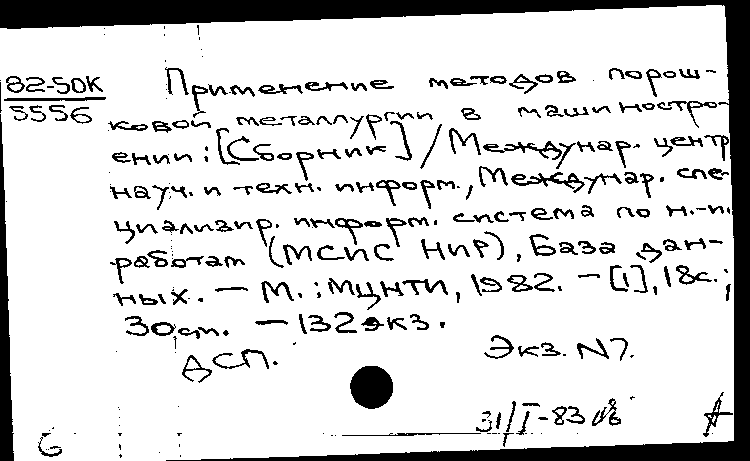 82-50К
5556
Применение методов порош-
ковой металлургии в машинострo-
ении: [Сборник] / Междунар. центр
науч. и техн. информ., Междунар. спе-
циализир. информ. система по н.-и.
работам (МСИС НИР), База дан-
ных. — М.: МЦНТИ, 1982. — [1], 18с.;
30см. — 132экз.
ДСП.
Экз. N7.
31/I-83
6